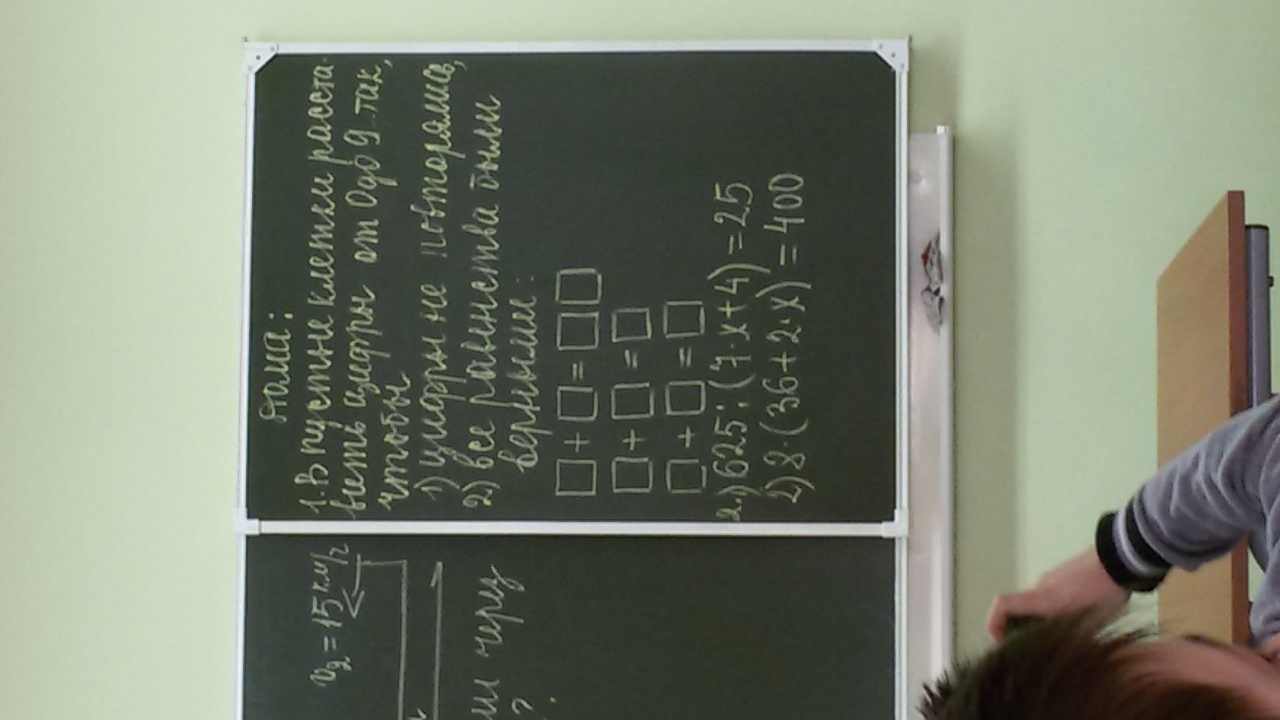 дома:
1. В пустые клетки расста-
вить цифры от 0 до 9 так,
чтобы
1) цифры не повторялись,
2) все равенства были
верными:
□ + □ = □□
□ + □ = □
□ + □ = □
2. 1) 625 : (7·x + 4) = 25
2) 8·(36 + 2·x) = 400
v₂ = 15 км/ч
через
?